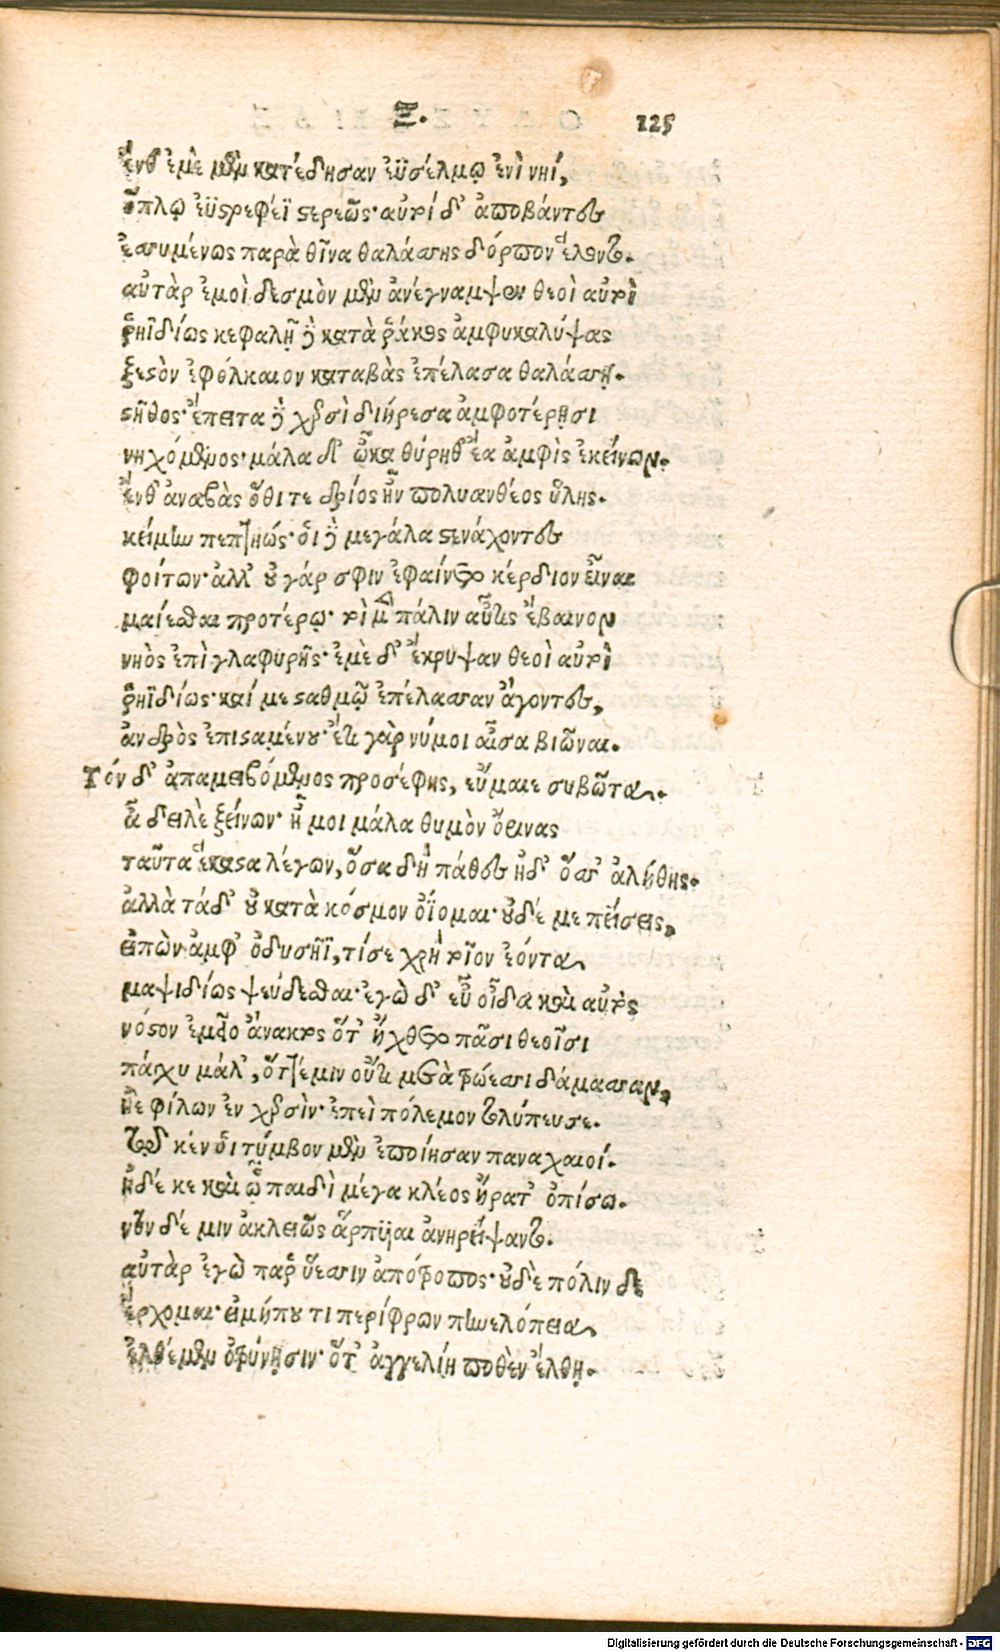 Ξ. 125
ἔνθ' ἐμὲ μὲν κατέδησαν ἐϋσέλμῳ ἐνὶ νηί,
ὅπλῳ ἐϋστρεφέϊ στερεῶς· αὐτοὶ δ' ἀποβάντες
ἐσσυμένως παρὰ θῖνα θαλάσσης δόρπον ἕλοντο.
αὐτὰρ ἐμοὶ δεσμὸν μὲν ἀνέγναμψαν θεοὶ αὐτοὶ
ῥηϊδίως κεφαλῇ δὲ κατὰ ῥάκος ἀμφικαλύψας
ξεστὸν ἐφόλκαιον καταβὰς ἐπέλασα θαλάσσῃ.
στῆθος· ἔπειτα δὲ χερσὶ διήρεσα ἀμφοτέρῃσι
νηχόμενος· μάλα δ' ὦκα θύρηθ' ἔα ἀμφὶς ἐκείνων.
ἔνθ' ἀναβὰς ὅθι τε δρίος ἦν πολυανθέος ὕλης.
κείμην πεπτηώς· οἱ δὲ μεγάλα στενάχοντες
φοίτων· ἀλλ' οὐ γάρ σφιν ἐφαίνετο κέρδιον εἶναι
μαίεσθαι προτέρω· τοὶ μὲν πάλιν αὖτις ἔβαινον
νηὸς ἐπὶ γλαφυρῆς· ἐμὲ δ' ἔκρυψαν θεοὶ αὐτοὶ
ῥηϊδίως· καί με σταθμῷ ἐπέλασσαν ἄγοντες,
ἀνδρὸς ἐπισταμένου· ἔτι γὰρ νύ μοι αἶσα βιῶναι.
Τόν δ' ἀπαμειβόμενος προσέφης, εὔμαιε συβῶτα.
ἆ δειλὲ ξείνων· ἦ μοι μάλα θυμὸν ὄρινας
ταῦτα ἕκαστα λέγων, ὅσα δὴ πάθες ἠδ' ὅσσ' ἀλήθης.
ἀλλὰ τάδ' οὐ κατὰ κόσμον ὀΐομαι· οὐδέ με πείσεις,
εἰπὼν ἀμφ' ὀδυσῆϊ, τί σε χρὴ τοῖον ἐόντα
μαψιδίως ψεύδεσθαι· ἐγὼ δ' εὖ οἶδα καὶ αὐτὸς
νόστον ἐμεῖο ἄνακτος ὅτ' ἤχθετο πᾶσι θεοῖσι
πάγχυ μάλ', ὅττί μιν οὔτι μετὰ τρώεσσι δάμασσαν,
ἠὲ φίλων ἐν χερσὶν· ἐπεὶ πόλεμον τολύπευσε.
τῷ κέν οἱ τύμβον μὲν ἐποίησαν παναχαιοί.
ἠδέ κε καὶ ᾧ παιδὶ μέγα κλέος ἤρατ' ὀπίσω.
νῦν δέ μιν ἀκλειῶς ἅρπυιαι ἀνηρείψαντο.
αὐτὰρ ἐγὼ παρ' ὕεσσιν ἀπότροπος· οὐδὲ πόλιν δὲ
ἔρχομαι· εἰ μήπου τι περίφρων πηνελόπεια
ἐλθέμεν ὀτρύνῃσιν· ὅτ' ἀγγελίη ποθὲν ἔλθῃ.
Digitalisierung gefördert durch die Deutsche Forschungsgemeinschaft - DFG